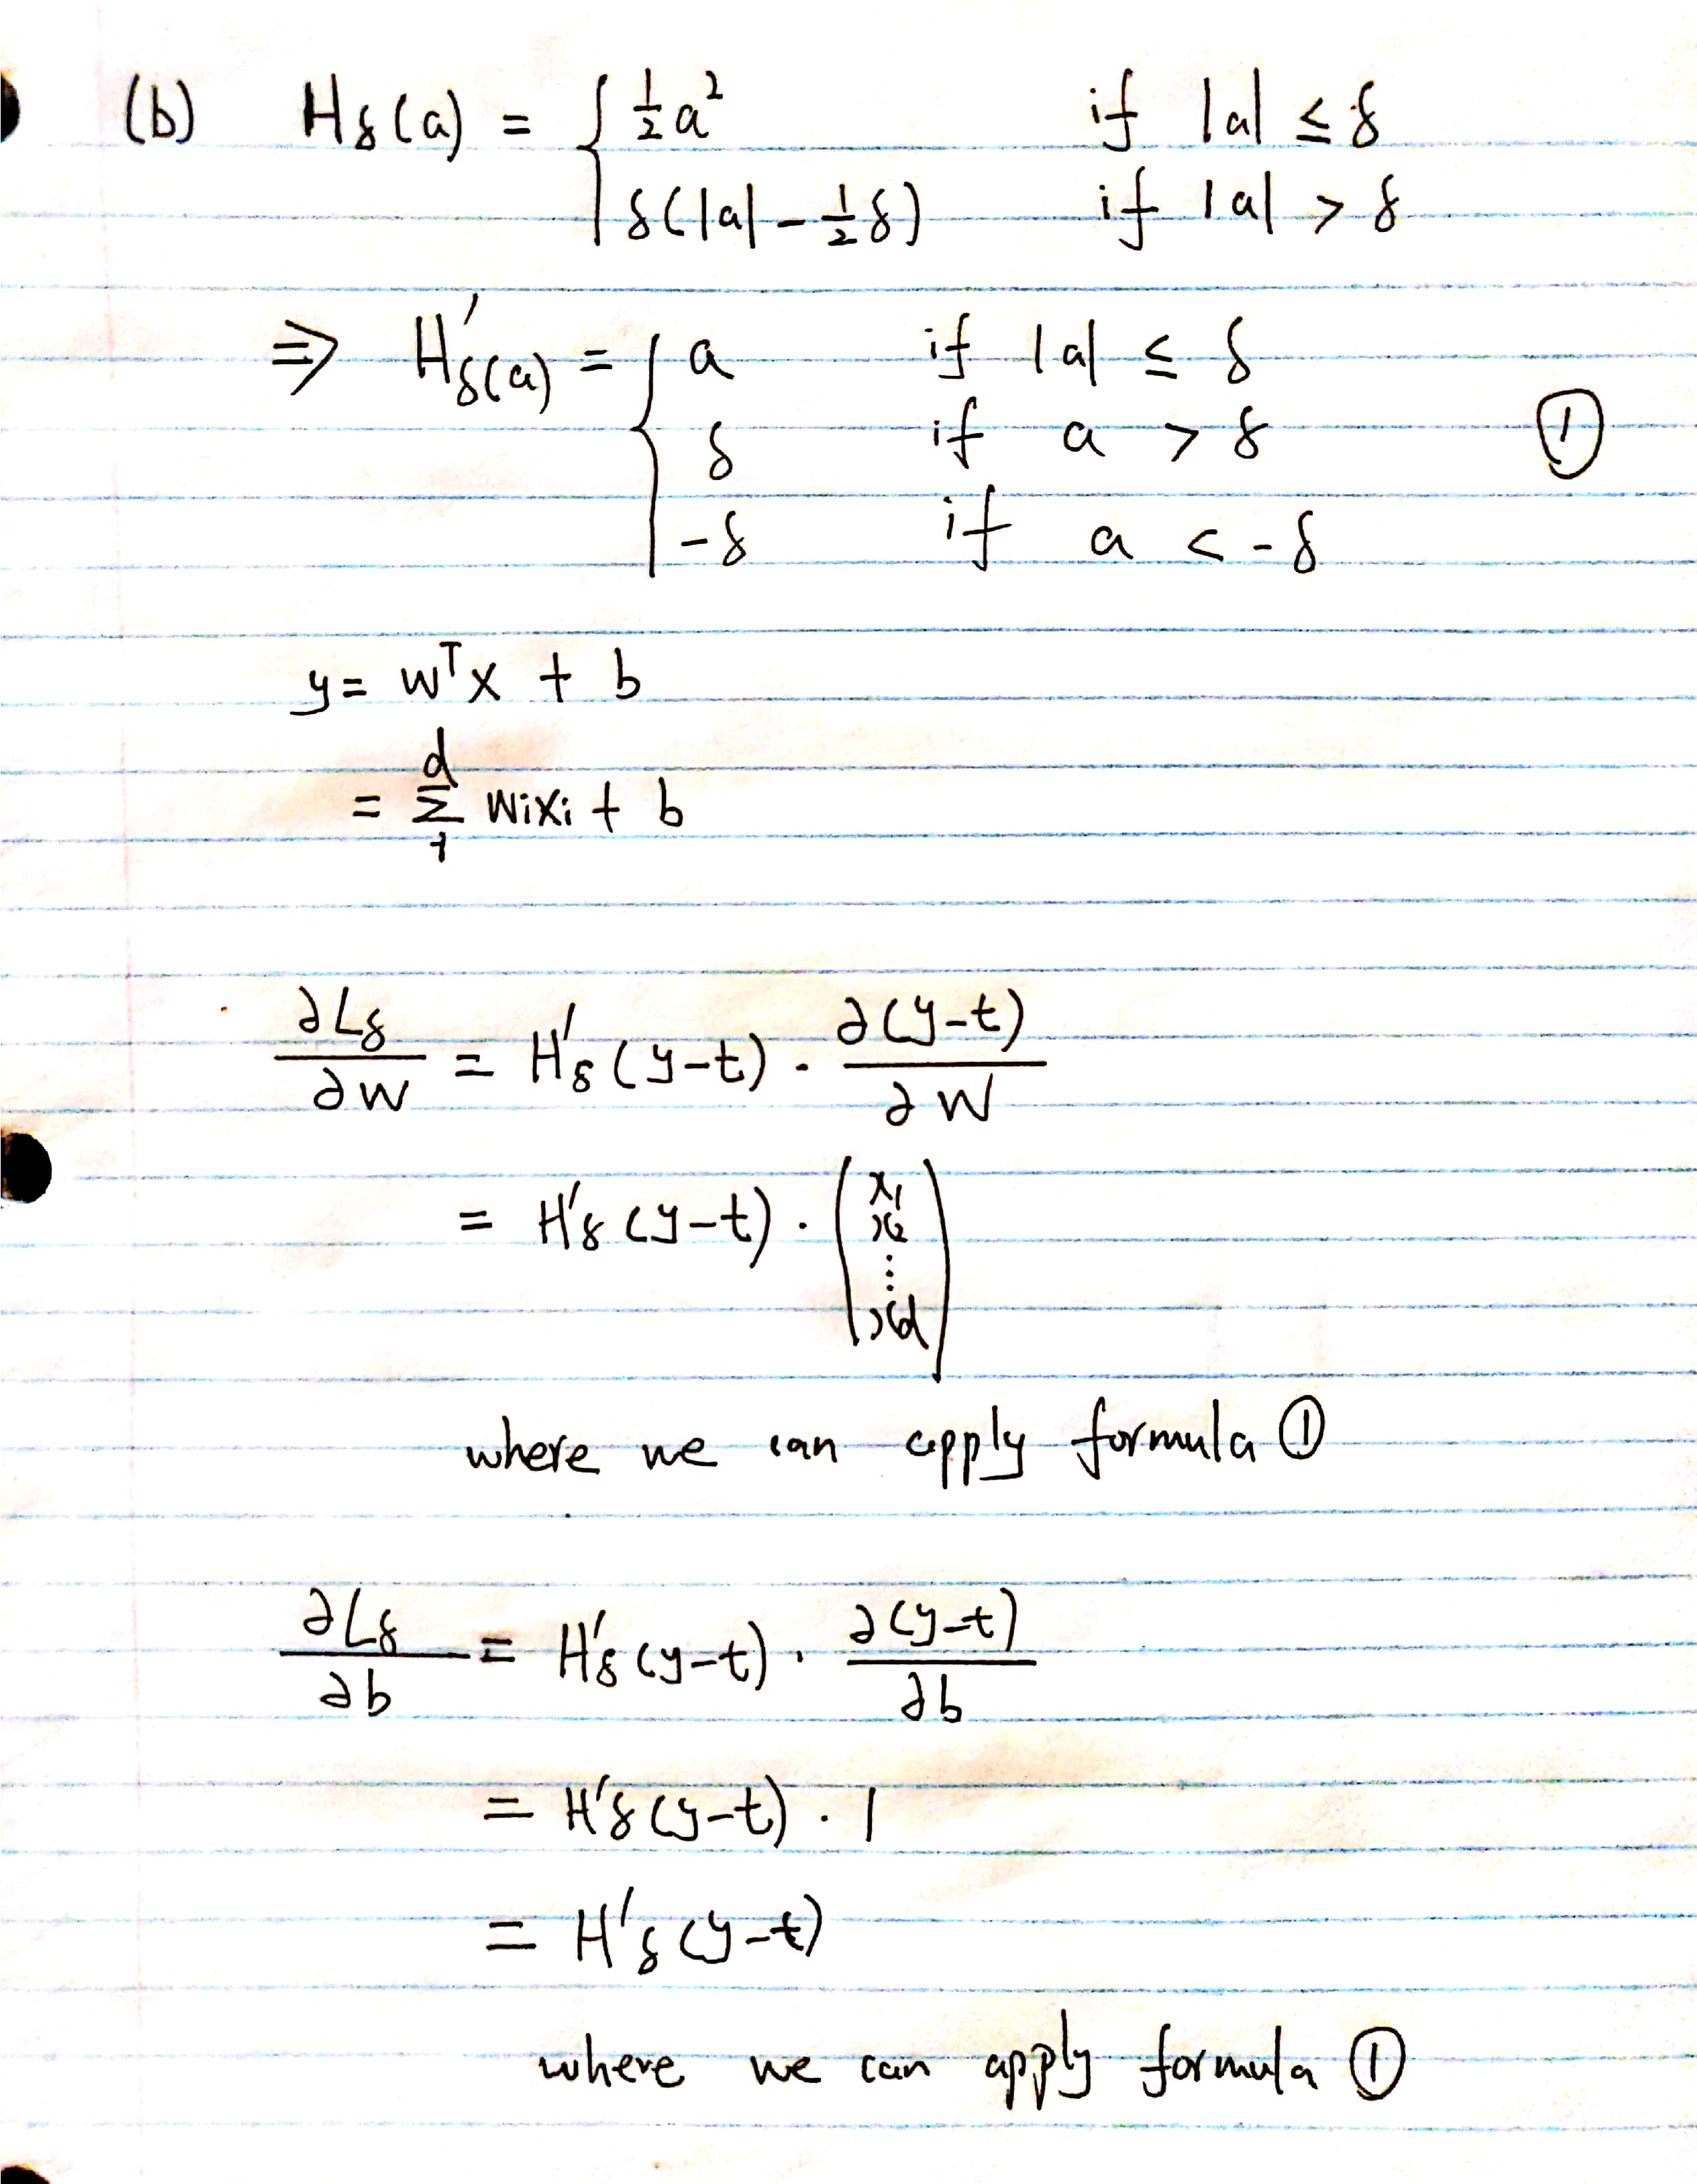 (b) H_δ(a) = { ½a² if |a| ≤ δ
δ(|a| − ½δ) if |a| > δ
⇒ H'_δ(a) = { a if |a| ≤ δ
δ if a > δ ①
−δ if a < −δ
y = wᵀx + b
= Σ₁ᵈ wixi + b
∂L_δ/∂w = H'_δ(y−t) · ∂(y−t)/∂w
= H'_δ(y−t) · (x₁ x₂ ⋮ xd)
where we can apply formula ①
∂L_δ/∂b = H'_δ(y−t) · ∂(y−t)/∂b
= H'_δ(y−t) · 1
= H'_δ(y−t)
where we can apply formula ①